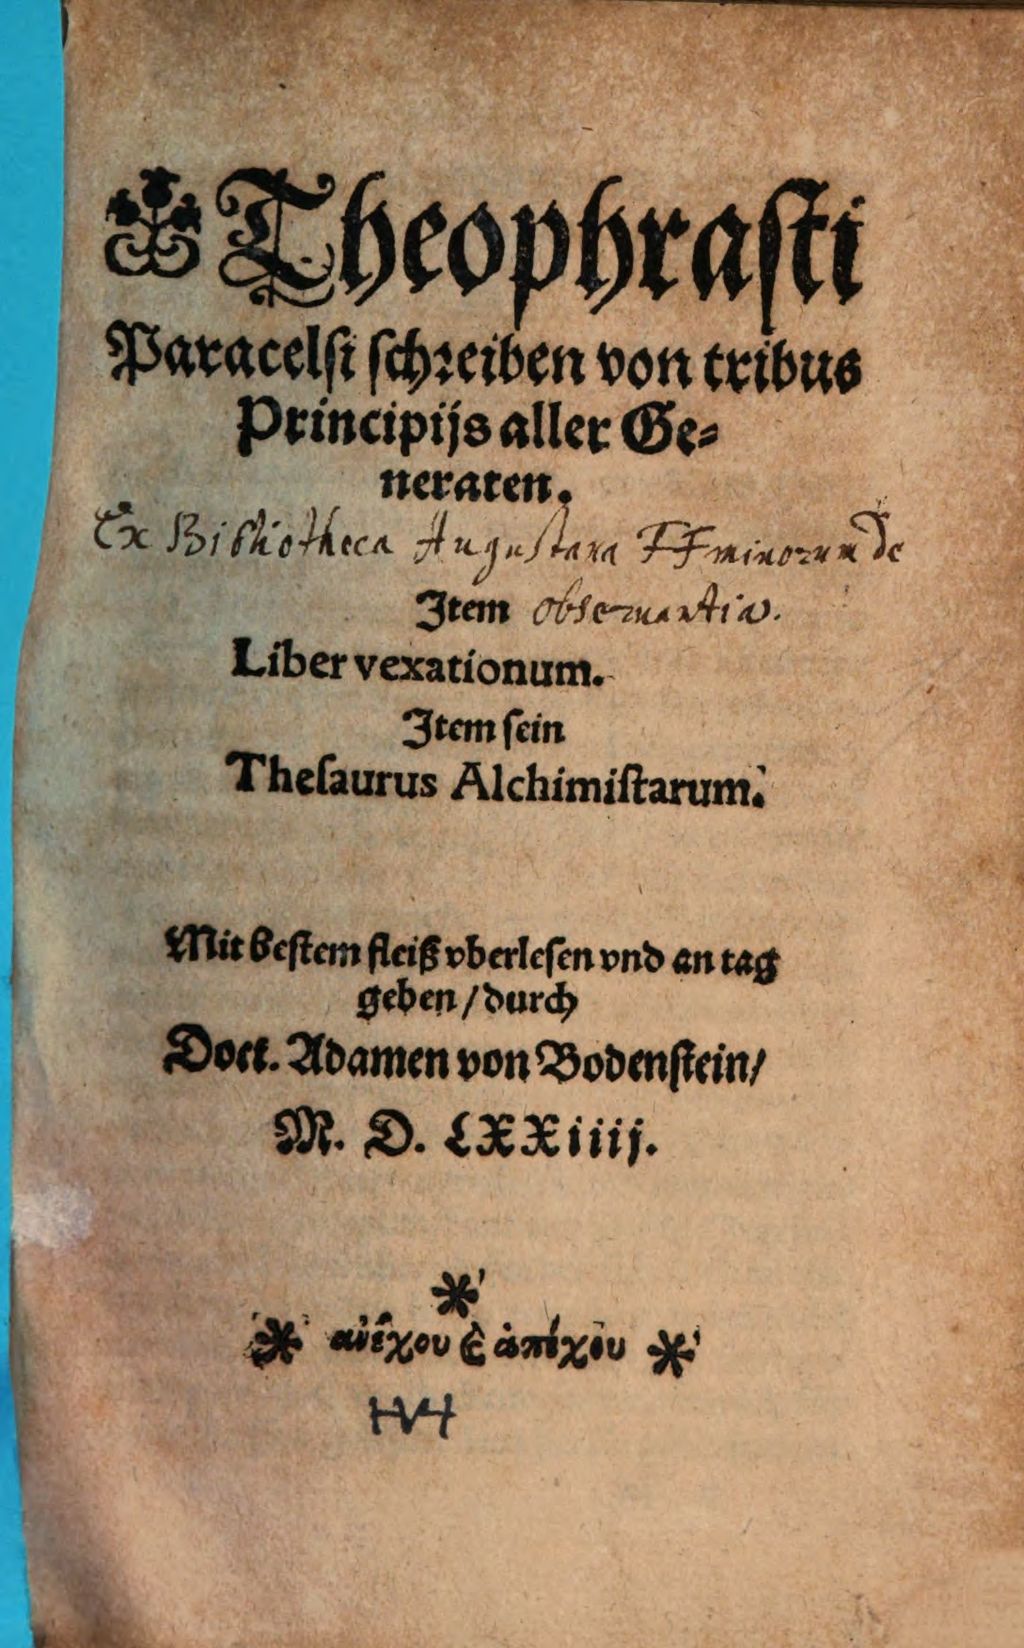 Theophrasti
Paracelsi schreiben von tribus
Principijs aller Ge⸗
neraten.
Ex Bibliotheca Augustana FF minorum de
Item observantia.
Liber vexationum.
Item sein
Thesaurus Alchimistarum.
Mit bestem fleiß vberlesen vnd an tag
geben / durch
Doct. Adamen von Bodenstein /
M. D. LXXiiij.
ἀνέχου ϗ ἀπέχου
HVH